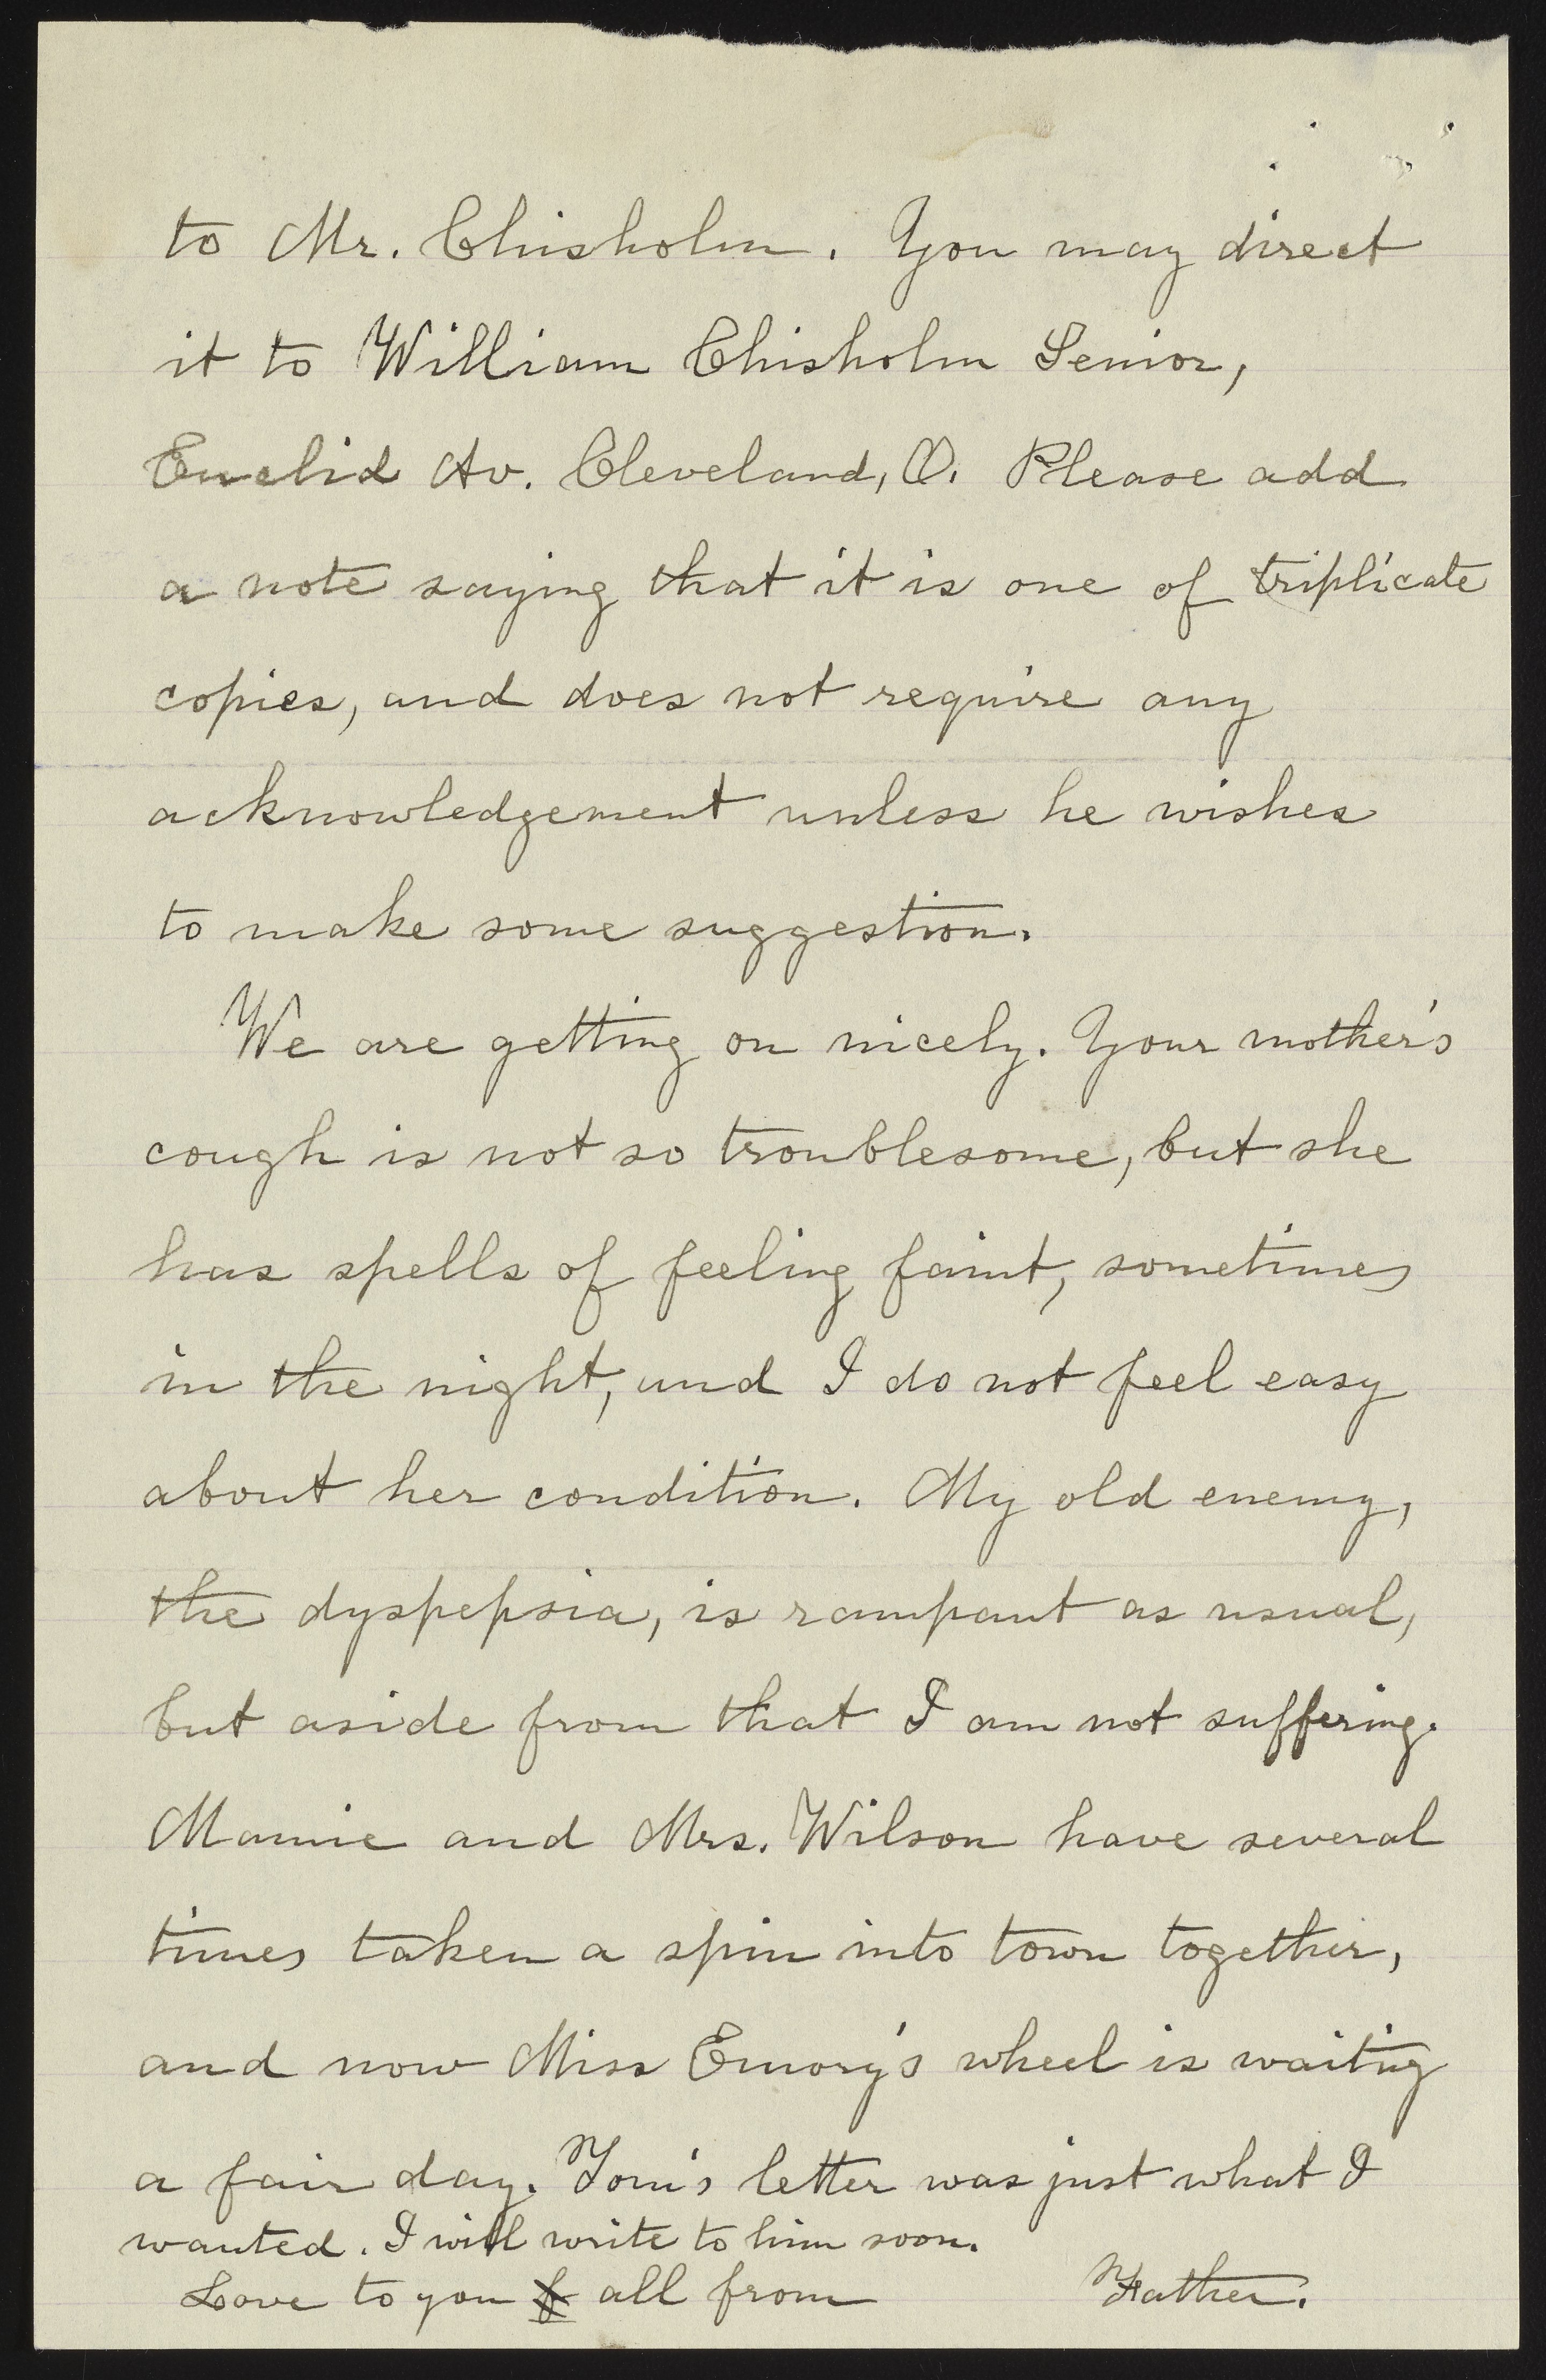 to Mr. Chisholm. You may direct
it to William Chisholm Senior,
Euclid Av. Cleveland, O. Please add
a note saying that it is one of triplicate
copies, and does not require any
acknowledgement unless he wishes
to make some suggestion.
We are getting on nicely. Your mother's
cough is not so troublesome, but she
has spells of feeling faint, sometimes
in the night, and I do not feel easy
about her condition. My old enemy,
the dyspepsia, is rampant as usual,
but aside from that I am not suffering.
Mamie and Mrs. Wilson have several
times taken a spin into town together,
and now Miss Emory's wheel is waiting
a fair day. Tom's letter was just what I
wanted. I will write to him soon.
Love to you all from
Father.